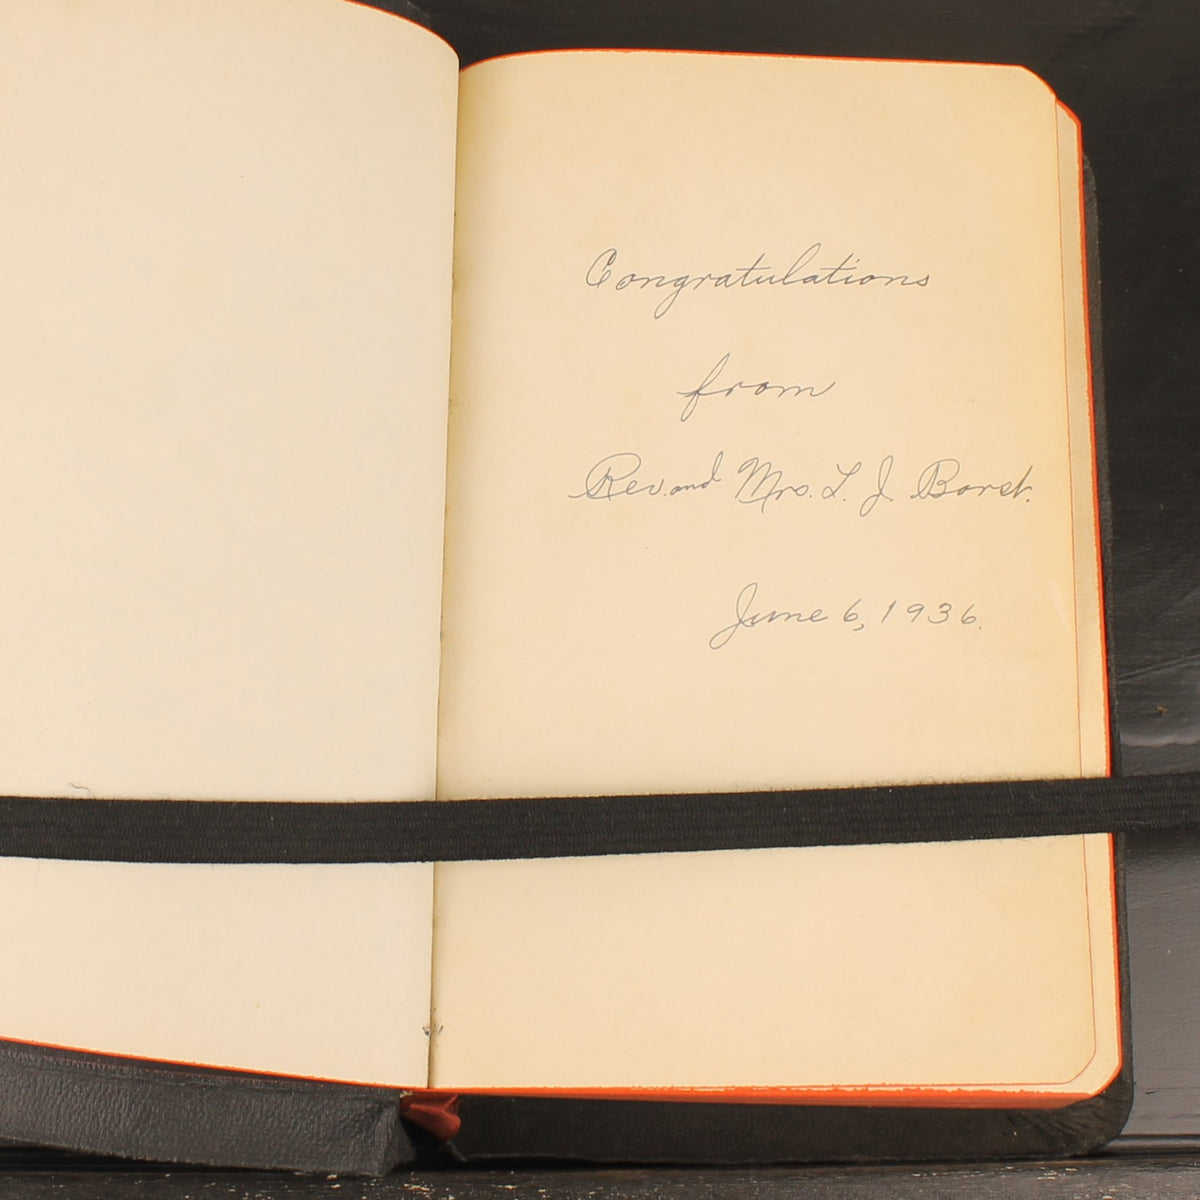 Congratulations
from
Rev. and Mrs. L. J. Borst.
June 6, 1936.